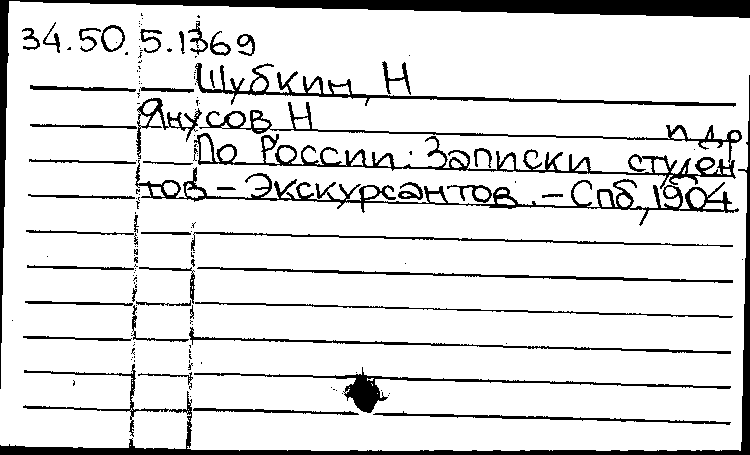 34.50.5.1369
Шубкин, Н
Янусов Н
и др.
По России: Записки студен-
тов - Экскурсантов. - Спб, 1904